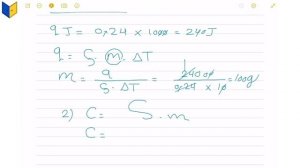 q J = 0,24 × 1000 = 240 J
q = S · m · ΔT
m = q / S · ΔT = 24000 / 0.24 × 10 = 100g
2) C = S · m
C =